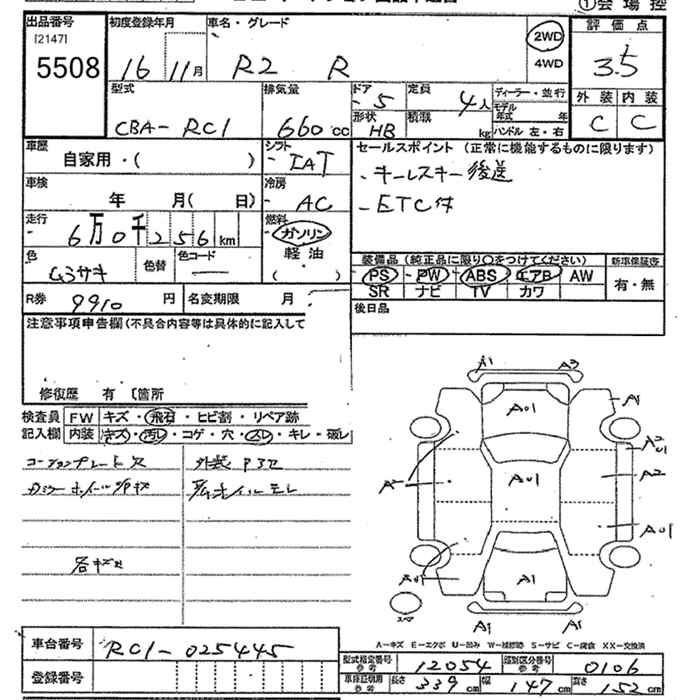 ①会場控
出品番号
[2147]
5508
初度登録年月
16 11月
車名・グレード
R2 R
2WD
4WD
評価点
3.5
型式
CBA-RC1
排気量
660cc
ドア
5
定員
4人
形状
HB
積載
kg
ディーラー・並行
モデル年式 年
ハンドル 左・右
外装 内装
C C
車歴
自家用・( )
シフト
IAT
セールスポイント (正常に機能するものに限ります)
・キーレスキー後送
-ETC付
車検
年 月( 日)
冷房
AC
走行
6万0千256km
燃料
ガソリン
軽油
( )
色
ムラサキ
色替
色コード
装備品(純正品に限り○をつけてください)
PS PW ABS エアB AW
SR ナビ TV カワ
新車保証書
有・無
R券 9910円
名変期限 月
後日品
注意事項申告欄(不具合内容等は具体的に記入して
修復歴 有 〔箇所
検査員
記入欄
FW キズ・飛石・ヒビ割・リペア跡
内装 キズ・汚レ・コゲ・穴・スレ・キレ・破レ
コーションプレート欠
各キズ
A1 A3
A01
A1
A2
A01
A01
A2
A01
A01
A1
A1 A1
スペア
A-キズ E-エクボ U-凹み W-補修跡 S-サビ C-腐食 XX-交換済
車台番号 RC1-025445
登録番号
型式指定番号 参考 12054
類別区分番号 参考 0106
車庫証明用 参考 長さ 339cm 幅 147cm 高さ 152cm